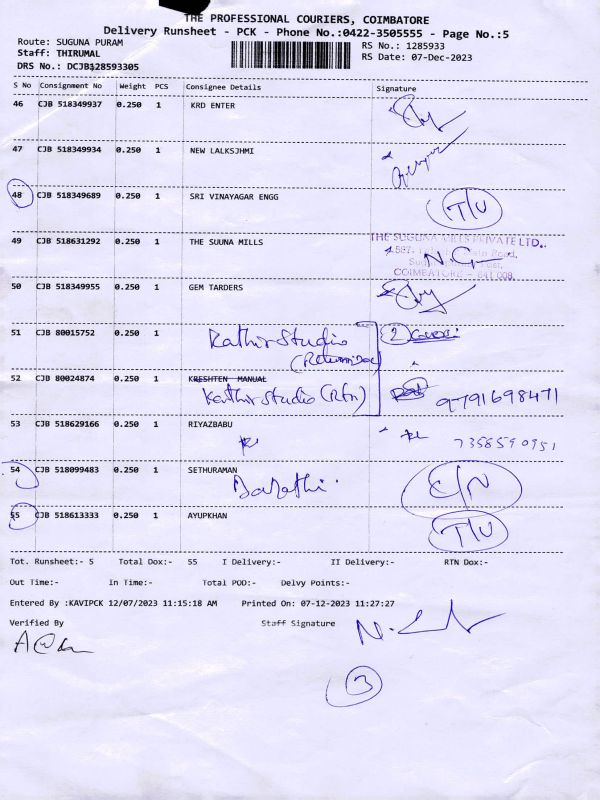 THE PROFESSIONAL COURIERS, COIMBATORE
Delivery Runsheet - PCK - Phone No.:0422-3505555 - Page No.:5
Route: SUGUNA PURAM RS No.: 1285933
Staff: THIRUMAL RS Date: 07-Dec-2023
DRS No.: DCJB128593305
S No Consignment No Weight PCS Consignee Details Signature
46 CJB 518349937 0.250 1 KRD ENTER
47 CJB 518349934 0.250 1 NEW LALKSJHMI
48 CJB 518349689 0.250 1 SRI VINAYAGAR ENGG T/U
THE SUGUNA MILLS PRIVATE LTD.,
49 CJB 518631292 0.250 1 THE SUUNA MILLS N.G
COIMBATORE - 641 008.
50 CJB 518349955 0.250 1 GEM TARDERS
51 CJB 80015752 0.250 1 Kathir Studio 2
52 CJB 80024874 0.250 1 KRESHTEN MANUAL
Kathir Studio (Rtn) 9791698471
53 CJB 518629166 0.250 1 RIYAZBABU
7358590951
54 CJB 518099483 0.250 1 SETHURAMAN
55 CJB 518613333 0.250 1 AYUPKHAN T/U
Tot. Runsheet:- 5 Total Dox:- 55 I Delivery:- II Delivery:- RTN Dox:-
Out Time:- In Time:- Total POD:- Delvy Points:-
Entered By :KAVIPCK 12/07/2023 11:15:18 AM Printed On: 07-12-2023 11:27:27
Verified By Staff Signature
3